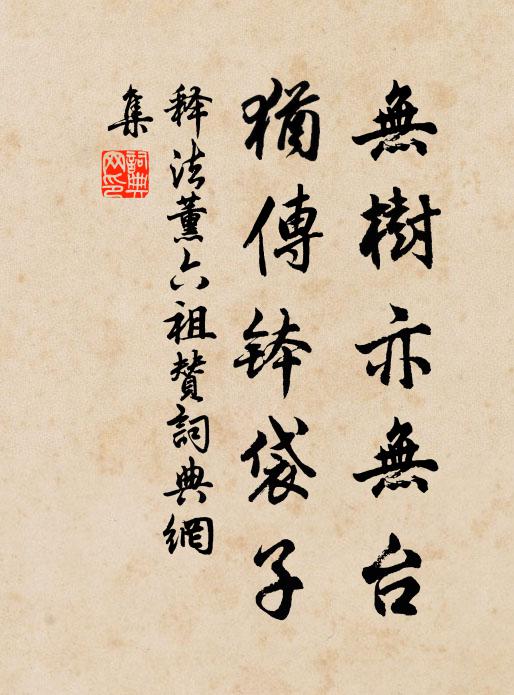 無樹亦無台
猶傳鉢袋子
释法薰六祖贊詞典網
集
詞典網印